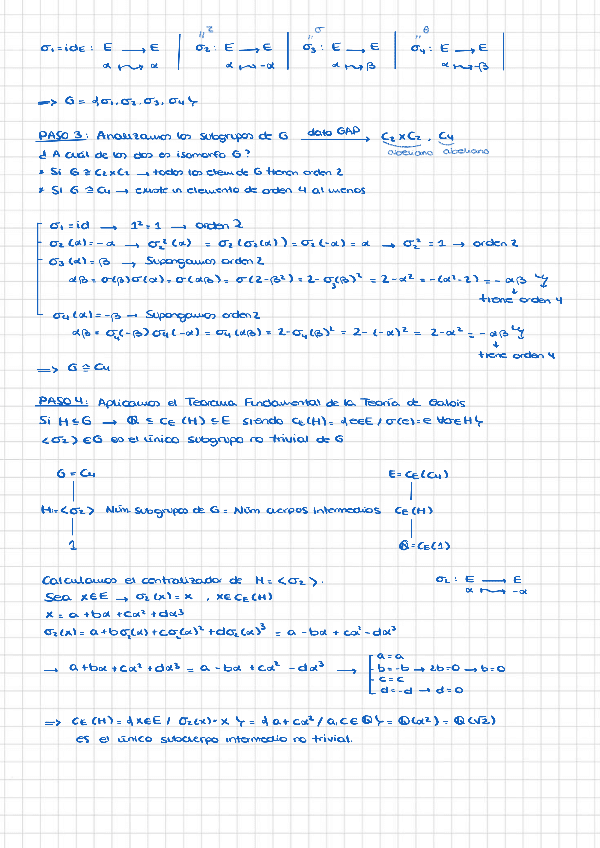 "τ "σ "θ
σ₁=id_E: E → E | σ₂: E → E | σ₃: E → E | σ₄: E → E
α ⟿ α α ⟿ -α α ⟿ β α ⟿ -β
=> G = {σ₁, σ₂, σ₃, σ₄}
PASO 3: Analizamos los subgrupos de G dato GAP → C₂×C₂ , C₄
abeliano abeliano
¿A cuál de los dos es isomorfo G?
* Si G ≅ C₂×C₂ → todos los elem de G tienen orden 2
* Si G ≅ C₄ → existe un elemento de orden 4 al menos
σ₁=id → 1²=1 → orden 2
σ₂(α)=-α → σ₂²(α) = σ₂(σ₂(α)) = σ₂(-α) = α → σ₂²=1 → orden 2
σ₃(α)=β → Supongamos orden 2
αβ = σ(β)σ(α) = σ(αβ) = σ(2-β²) = 2-σ₃(β)² = 2-α² = -(α²-2) = -αβ ↯
tiene orden 4
σ₄(α)=-β → Supongamos orden 2
αβ = σ₄(-β)σ₄(-α) = σ₄(αβ) = 2-σ₄(β)² = 2-(-α)² = 2-α² = -αβ ↯
tiene orden 4
=> G ≅ C₄
PASO 4: Aplicamos el Teorema Fundamental de la Teoría de Galois
Si H≤G → ℚ ≤ C_E(H) ≤ E siendo C_E(H) = {e∈E / σ(e)=e ∀σ∈H}
<σ₂> ∈G es el único subgrupo no trivial de G
G = C₄ E = C_E(C₄)
H=<σ₂> Núm subgrupos de G = Núm cuerpos intermedios C_E(H)
1 ℚ=C_E(1)
Calculamos el centralizador de H=<σ₂>. σ₂: E → E
Sea x∈E → σ₂(x)=x , x∈C_E(H) α ⟿ -α
x = a+bα+cα²+dα³
σ₂(x) = a+bσ₂(α)+cσ₂(α)²+dσ₂(α)³ = a-bα+cα²-dα³
→ a+bα+cα²+dα³ = a-bα+cα²-dα³ → a=a
b=-b → 2b=0 → b=0
c=c
d=-d → d=0
=> C_E(H) = {x∈E / σ₂(x)=x} = {a+cα² / a,c∈ℚ} = ℚ(α²) = ℚ(√2)
es el único subcuerpo intermedio no trivial.